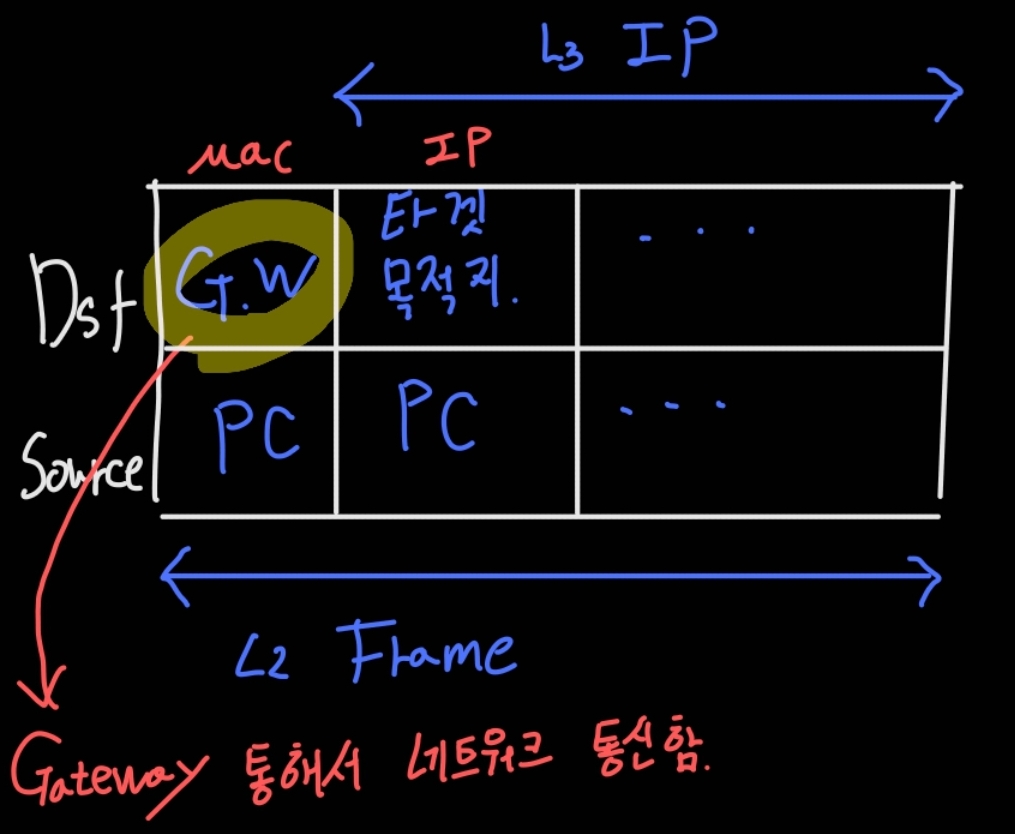 L3 IP
MAC IP
Dst G.W 타겟 목적지. . . .
Source PC PC . . .
L2 Frame
Gateway 통해서 네트워크 통신함.